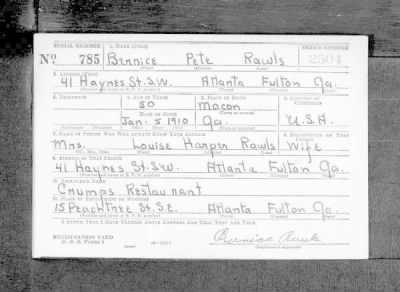 SERIAL NUMBER 1. NAME (Print) ORDER NUMBER
No 785 Bernice Pete Rawls 2504
(First) (Middle) (Last)
2. ADDRESS (Print)
41 Haynes St. S.W. Atlanta Fulton Ga.
3. TELEPHONE 4. AGE IN YEARS 5. PLACE OF BIRTH 6. COUNTRY OF CITIZENSHIP
30 Macon
DATE OF BIRTH (Town or county)
Jan. 5 1910 Ga. U.S.A.
(Exchange) (Number) (Mo.) (Day) (Yr.) (State or country)
7. NAME OF PERSON WHO WILL ALWAYS KNOW YOUR ADDRESS 8. RELATIONSHIP OF THAT PERSON
Mrs. Louise Harper Rawls Wife
(Mr., Mrs., Miss) (First) (Middle) (Last)
9. ADDRESS OF THAT PERSON
41 Haynes St. S.W. Atlanta Fulton Ga.
10. EMPLOYER'S NAME
Crumps Restaurant
11. PLACE OF EMPLOYMENT OR BUSINESS
15 Peachtree St. S.E. Atlanta Fulton Ga.
I AFFIRM THAT I HAVE VERIFIED ABOVE ANSWERS AND THAT THEY ARE TRUE.
REGISTRATION CARD
D. S. S. Form 1
Bernice Rawls
(Registrant's signature)